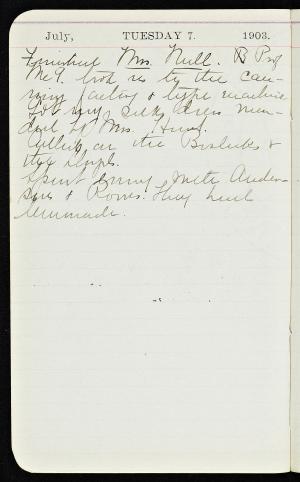 July, TUESDAY 7. 1903.
Finished Mrs. Null. B Prof
McG. took us to the can-
ning factory & type machine
Got my silk dress men-
ded by Mrs.
Called on the &
the
Spent evening with Ander-
sons & Rowes. They had
lemonade.